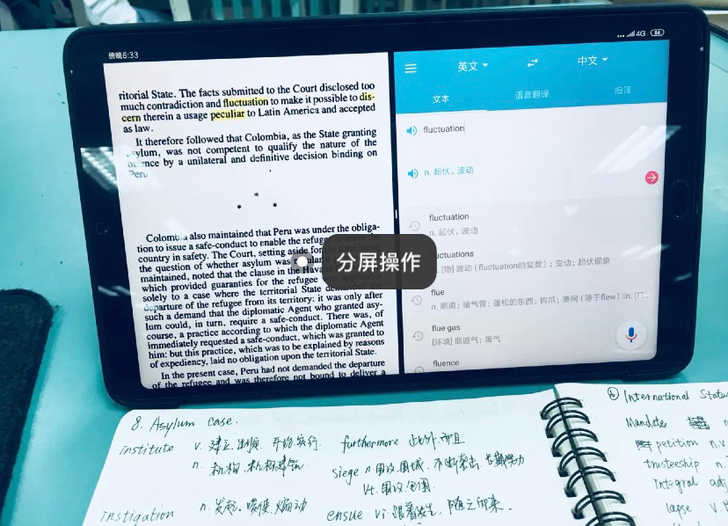 傍晚6:33
4G
ritorial State. The facts submitted to the Court disclosed too
much contradiction and fluctuation to make it possible to dis-
cern therein a usage peculiar to Latin America and accepted
as law.
It therefore followed that Colombia, as the State granting
asylum, was not competent to qualify the nature of the
by a unilateral and definitive decision binding on
Peru
* * *
Colombia also maintained that Peru was under the obliga-
tion to issue a safe-conduct to enable the refugee to leave the
country in safety. The Court, setting aside for the time being
the question of whether asylum was
maintained, noted that the clause in the Havana
which provided guaranties for the refugee was
solely to a case where the territorial State demanded the
departure of the refugee from its territory: it was only after
such a demand that the diplomatic Agent who granted asy-
lum could, in turn, require a safe-conduct. There was, of
course, a practice according to which the diplomatic Agent
immediately requested a safe-conduct, which was granted to
him: but this practice, which was to be explained by reasons
of expediency, laid no obligation upon the territorial State.
In the present case, Peru had not demanded the departure
of the refugee and was therefore not bound to deliver a
英文 中文
文本 语音翻译
fluctuation
n. 起伏，波动
fluctuation
n. 起伏，波动
fluctuations
n. [物] 波动（fluctuation的复数）；变动；起伏现象
flue
n. 烟道；暖气管；蓬松的东西；钩爪；渔网（等于flew）
flue gas
[环境] 烟道气；废气
fluence
分屏操作
8. Asylum case.
institute v. 建立.制度.开始.实行. furthermore 此外.而且
n. 机构.机构建筑 siege n 围攻.围城.
vt. 围攻.包围
instigation n. 发起.唆使.煽动 ensue vi.跟着发生.随之而来.
⑥ International Statu
Mandate
petition n.v
trusteeship n.
integral adj
lapse v.